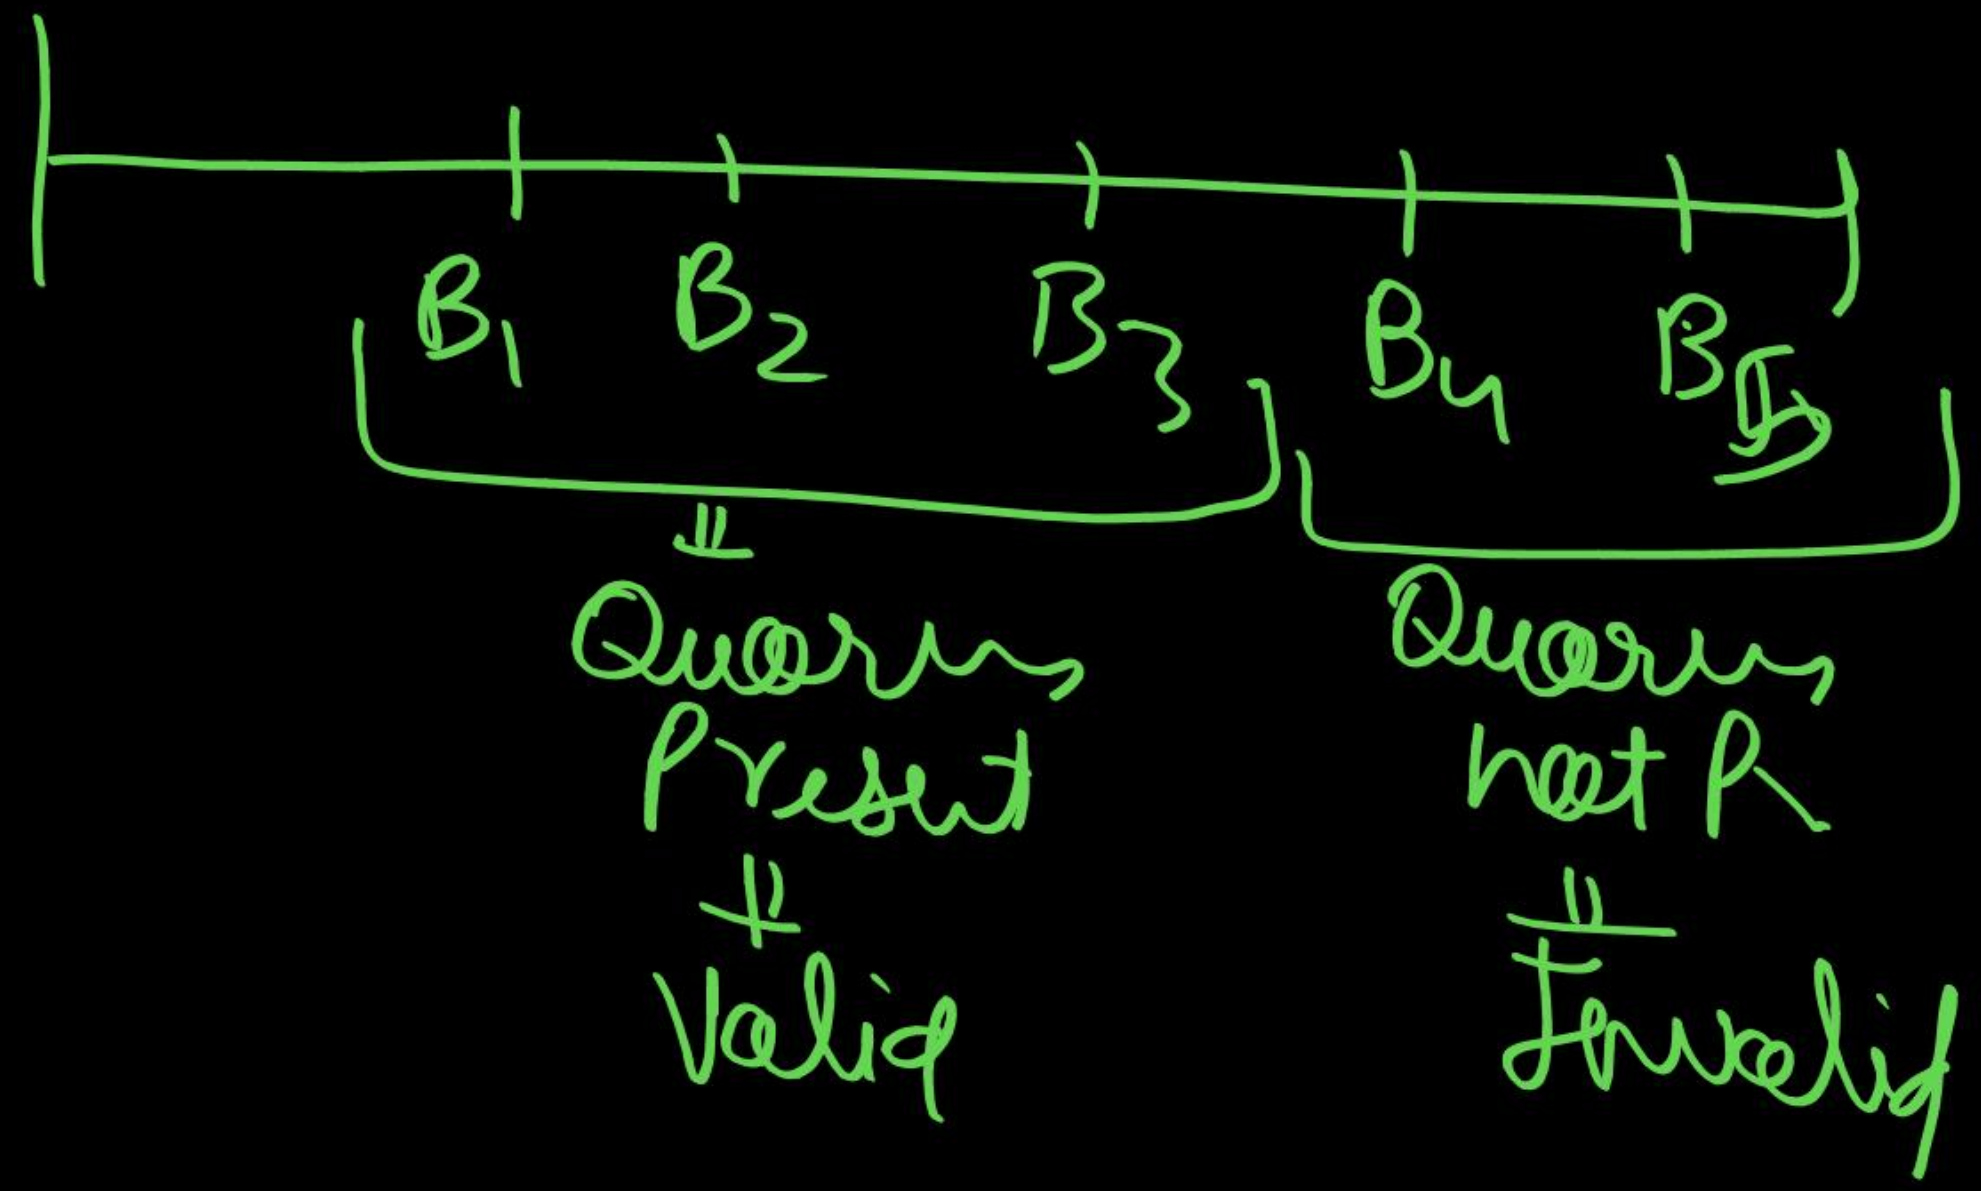 B1 B2 B3 B4 B5
Quorum
Present
Valid
Quorum
not P
Invalid